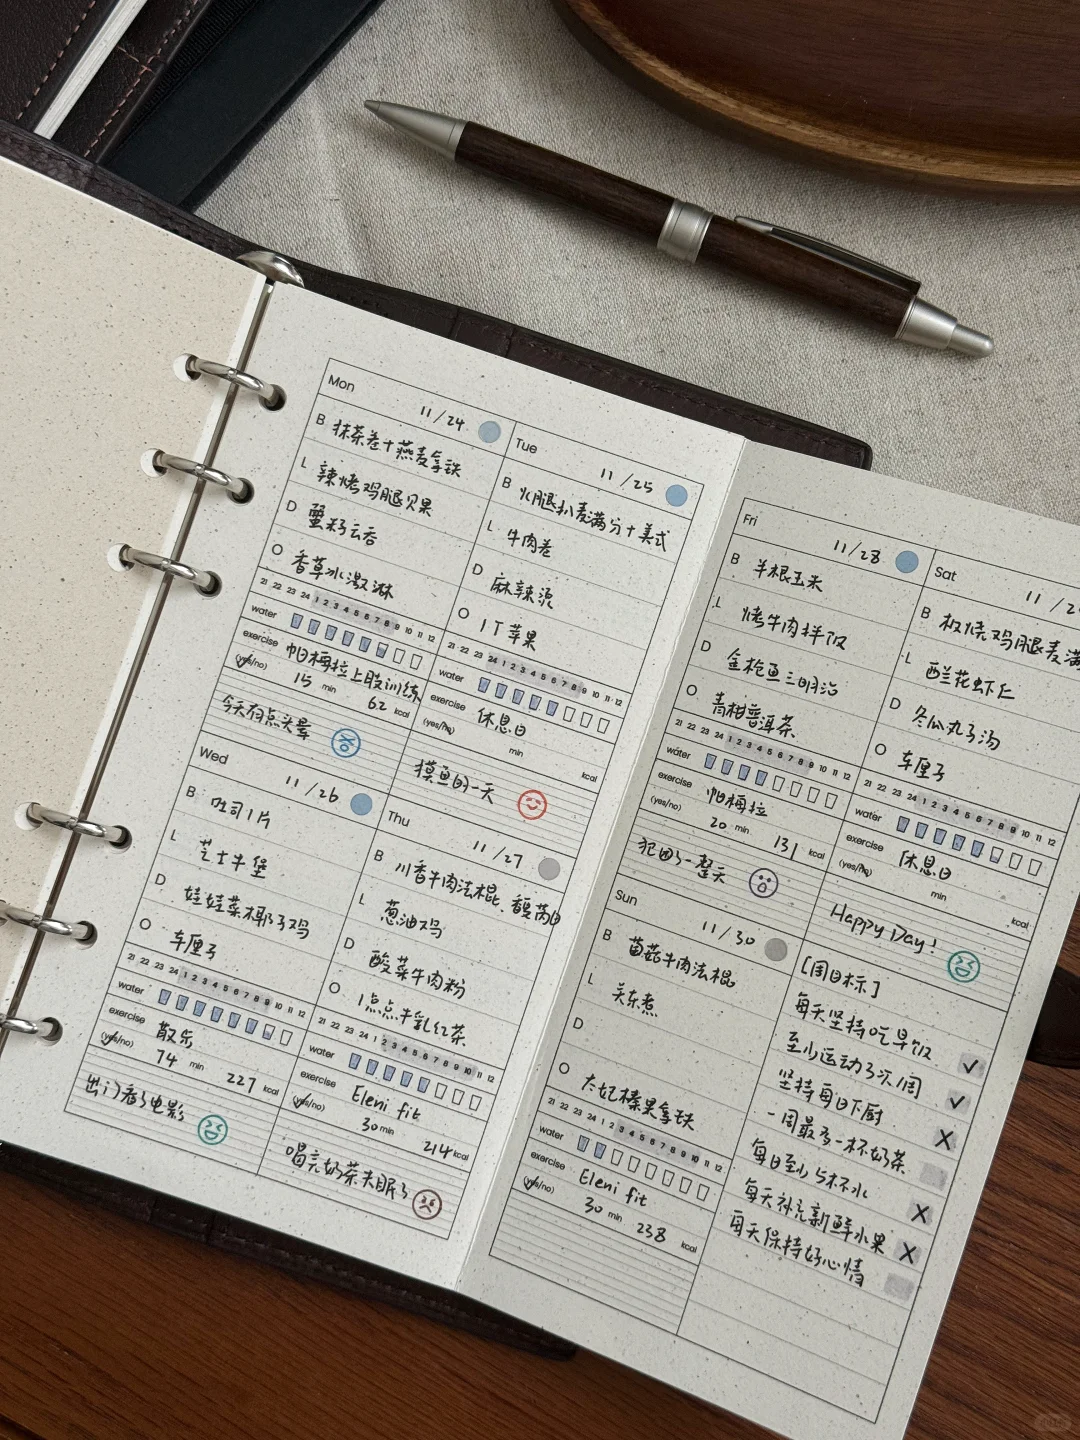 Mon
11/24
B 抹茶卷+燕麦拿铁
L 辣烤鸡腿贝果
D 蟹籽云吞
O 香草冰激淋
21 22 23 24 1 2 3 4 5 6 7 8 9 10 11 12
water
exercise 帕梅拉上肢训练
(yes/no) 15 min 62 kcal
今天有点头晕
Tue
11/25
B 火腿扒麦满分+美式
L 牛肉卷
D 麻辣烫
O 1个苹果
21 22 23 24 1 2 3 4 5 6 7 8 9 10 11 12
water
exercise 休息日
(yes/no) min kcal
摸鱼的一天
Wed
11/26
B 吐司1片
L 芝士牛堡
D 娃娃菜椰子鸡
O 车厘子
21 22 23 24 1 2 3 4 5 6 7 8 9 10 11 12
water
exercise 散步
(yes/no) 74 min 227 kcal
出门看了电影
Thu
11/27
B 川香牛肉法棍、馥芮白
L 葱油鸡
D 酸菜牛肉粉
O 1点点牛乳红茶
21 22 23 24 1 2 3 4 5 6 7 8 9 10 11 12
water
exercise Eleni fit
(yes/no) 30 min 214 kcal
喝完奶茶失眠了
Fri
11/28
B 羊根玉米
L 烤牛肉拌饭
D 金枪鱼三明治
O 青柑普洱茶
21 22 23 24 1 2 3 4 5 6 7 8 9 10 11 12
water
exercise 帕梅拉
(yes/no) 20 min 131 kcal
犯困了一整天
Sat
11/2
B 板烧鸡腿麦满
L 西兰花虾仁
D 冬瓜丸子汤
O 车厘子
21 22 23 24 1 2 3 4 5 6 7 8 9 10 11 12
water
exercise 休息日
(yes/no) min kcal
Happy Day!
Sun
11/30
B 菌菇牛肉法棍
L 关东煮
D
O 太妃榛果拿铁
21 22 23 24 1 2 3 4 5 6 7 8 9 10 11 12
water
exercise Eleni fit
(yes/no) 30 min 238 kcal
[周目标]
每天坚持吃早饭 ✓
至少运动3次/周 ✓
坚持每日下厨 X
一周最多一杯奶茶
每日至少5杯水 X
每天补充新鲜水果 X
每天保持好心情